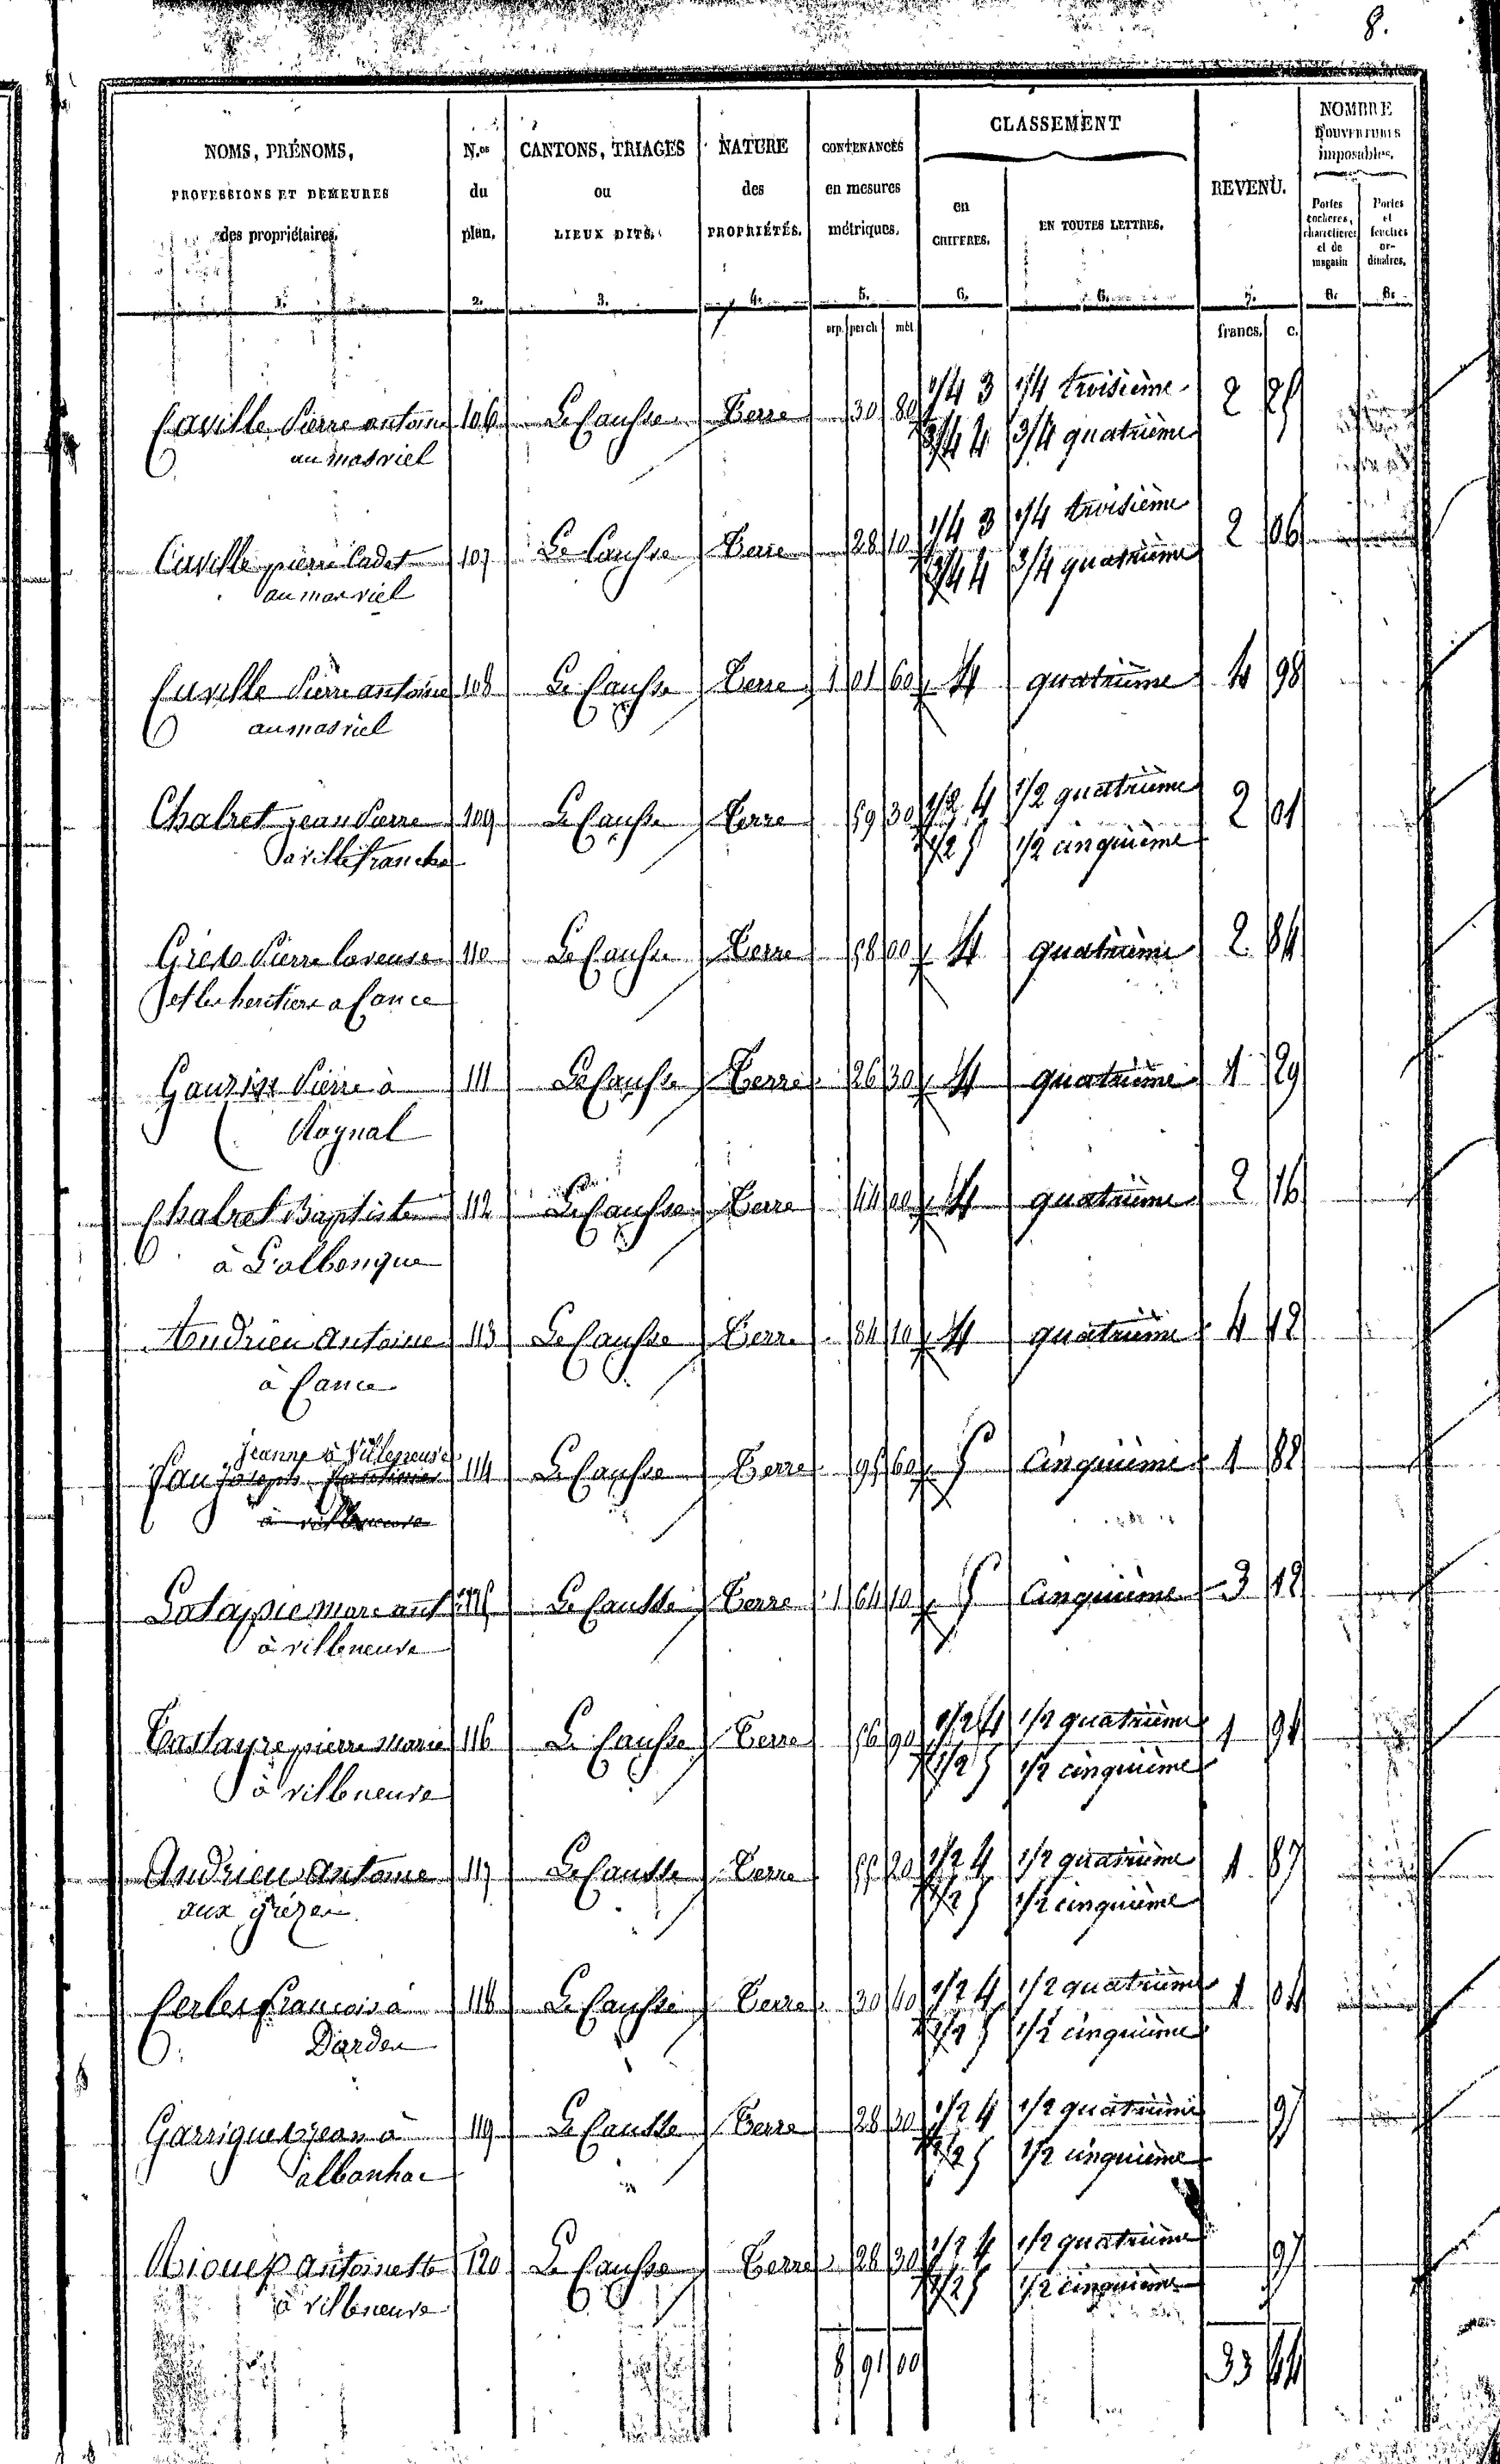 8.
NOMS, PRÉNOMS, PROFESSIONS ET DEMEURES des propriétaires.
N.os du plan.
CANTONS, TRIAGES ou LIEUX DITS.
NATURE des PROPRIÉTÉS.
CONTENANCES en mesures métriques.
CLASSEMENT
en CHIFFRES.
EN TOUTES LETTRES.
REVENU.
NOMBRE D'OUVERTURES imposables.
Portes cochères, charretières et de magasin
Portes et fenêtres ordinaires.
1. 2. 3. 4. 5. 6. 6. 7. 8. 8.
arp. perch. mèt. francs. c.
Caville Pierre antoine 106 Le Causse Terre 30 80 1/4 3 1/4 troisième 2 25
au mas viel 3/4 4 3/4 quatrième
Caville pierre Cadet 107 Le Causse Terre 28 10 1/4 3 1/4 troisième 2 06
au mas viel 3/4 4 3/4 quatrième
Caville Pierre antoine 108 Le Causse Terre 1 01 60 4 quatrième 4 98
au mas viel
Chalret jean Pierre 109 Le Causse Terre 59 30 1/2 4 1/2 quatrième 2 01
a villefranche 1/2 5 1/2 cinquième
Pierre 110 Le Causse Terre 58 00 4 quatrième 2 84
et les heritiers a Cance
Pierre à 111 Le Causse Terre 26 30 4 quatrième 1 29
Roynal
Chalret Baptiste 112 Le Causse Terre 44 00 4 quatrième 2 16
à
Andrieu Antoine 113 Le Causse Terre 84 10 4 quatrième 4 12
à Cance
Jeanne à Villeneuve
114 Le Causse Terre 95 60 5 Cinquième 1 82
à villeneuve
Latapie marc ant 115 Le Causse Terre 1 64 10 5 Cinquième 3 12
à villeneuve
pierre marie 116 Le Causse Terre 56 90 1/2 4 1/2 quatrième 1 94
à villeneuve 1/2 5 1/2 cinquième
Andrieu Antoine 117 Le Causse Terre 55 20 1/2 4 1/2 quatrième 1 87
aux grèzes 1/2 5 1/2 cinquième
Cerles francois a 118 Le Causse Terre 30 40 1/2 4 1/2 quatrième 1 04
Darden 1/2 5 1/2 cinquième
Garrigues jean a 119 Le Causse Terre 28 30 1/2 4 1/2 quatrième 97
Salbanhac 1/2 5 1/2 cinquième
antoinette 120 Le Causse Terre 28 30 1/2 4 1/2 quatrième 97
à villeneuve 1/2 5 1/2 cinquième
8 91 00 33 44